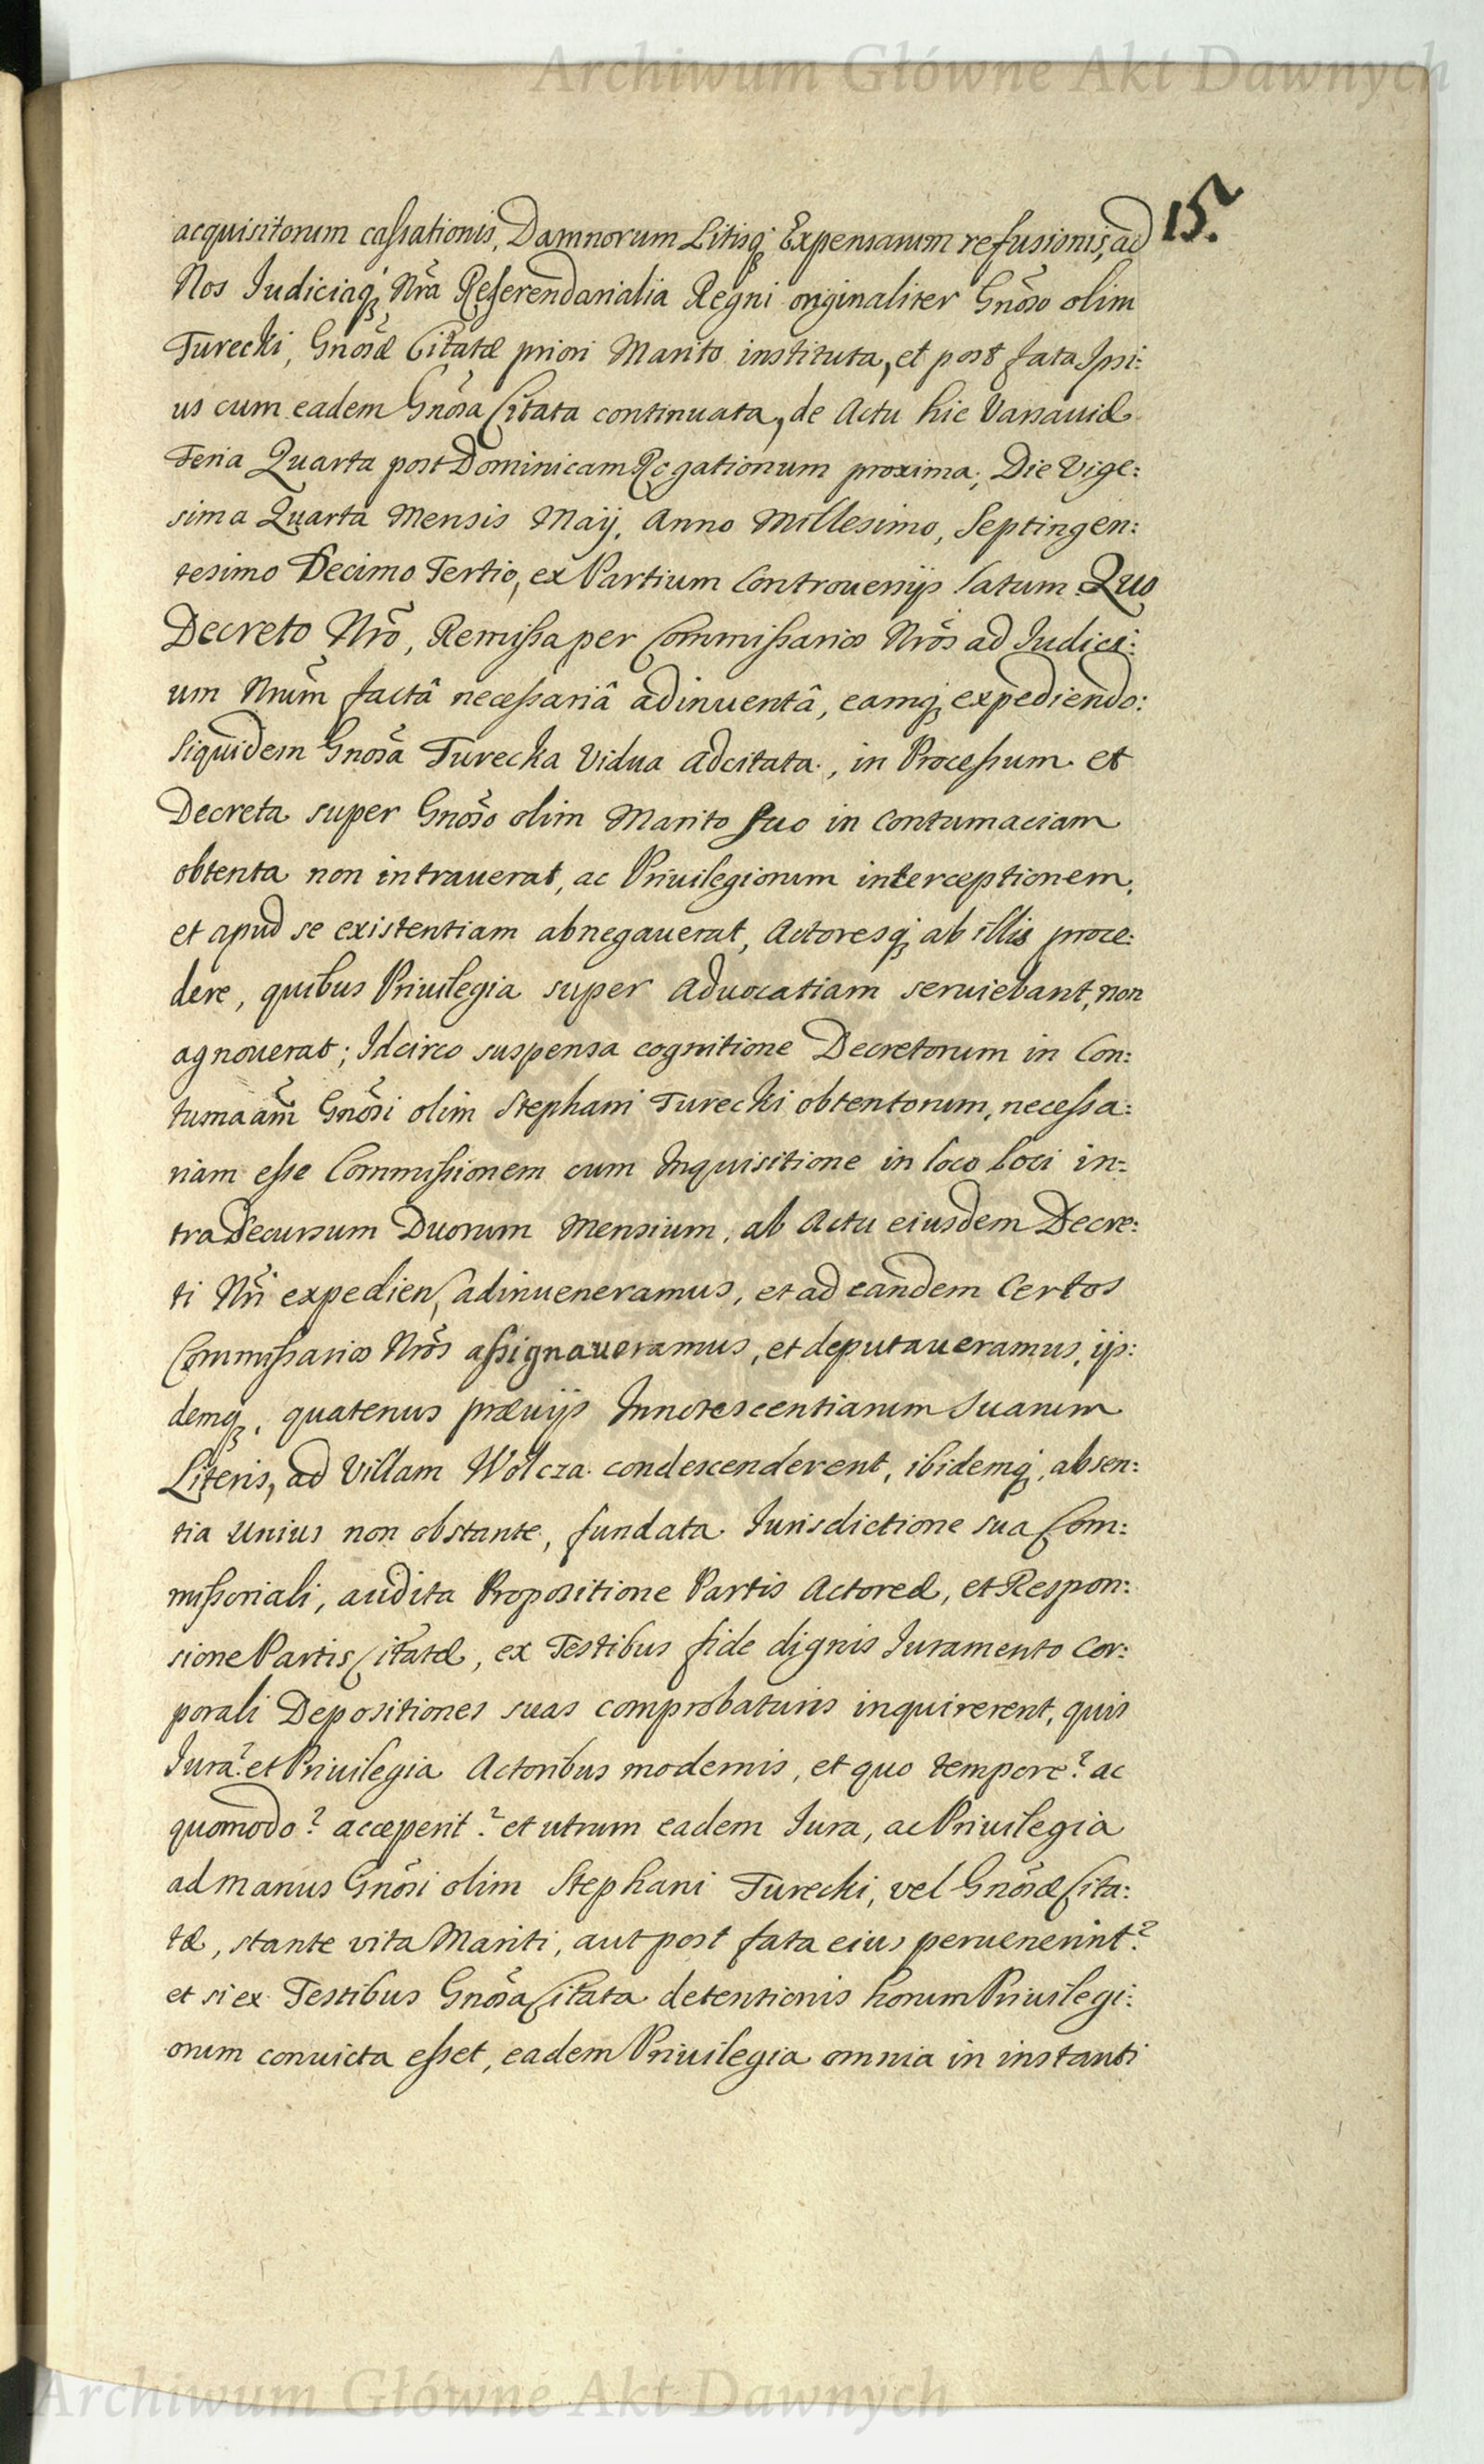 Archiwum Główne Akt Dawnych
15.
acquisitorum cassationis, Damnorum Litisq; Expensarum refusionis, ad
Nos Iudiciaq; Nr̃a Referendarialia Regni originaliter Gnõso olim
Turecki, Gnõsæ Citatæ priori Marito instituta, et post fata Ipsi:
us cum eadem Gnõsa Citata continuata, de Actu hic Varsaviæ
Feria Quarta post Dominicam Rogationum proxima, Die Vige:
sima Quarta Mensis Maij, Anno Millesimo, Septingen:
tesimo Decimo Tertio, ex Partium Controversijs latum. Quo
Decreto Nrõ, Remissa per Commissarios Nrõs ad Iudici:
um Nrũm factâ necessariâ adinventâ, eamq; expediendo:
Siquidem Gnõsa Turecka Vidua adcitata, in Processum et
Decreta super Gnõso olim Marito suo in Contumaciam
obtenta non intraverat, ac Privilegiorum interceptionem,
et apud se existentiam abnegauerat, Actoresq; ab illis proce:
dere, quibus Privilegia super Advocatiam serviebant, non
agnoverat; Idcirco suspensa cognitione Decretorum in Con:
tumaciam̃ Gnõsi olim Stephani Turecki obtentorum, necessa:
riam esse Commissionem cum Inquisitione in loco loci in:
tra Decursum Duorum Mensium, ab Actu eiusdem Decre:
ti Nr̃i expedien, adinveneramus, et ad eandem Certos
Commissarios Nrõs assignaveramus, et deputaveramus, ijs:
demq;, quatenus prævijs Innotescentiarum suarum
Literis, ad Villam Wolcza condescenderent, ibidemq;, absen:
tia unius non obstante, fundata Iurisdictione sua Com:
missoriali, audita Propositione Partis Actoreæ, et Respon:
sione Partis Citatæ, ex Testibus fide dignis Iuramento Cor:
porali Depositiones suas comprobaturis inquirerent, quis
Iura? et Privilegia Actoribus modernis, et quo tempore? ac
quomodo? acceperit? et utrum eadem Iura, ac Privilegia
ad manus Gnõsi olim Stephani Turecki, vel Gnõsæ Cita:
tæ, stante vita Mariti, aut post fata eius pervenerint?
et si ex Testibus Gnõsa Citata detentionis horum Privilegi:
orum convicta esset, eadem Privilegia omnia in instanti
Archiwum Główne Akt Dawnych